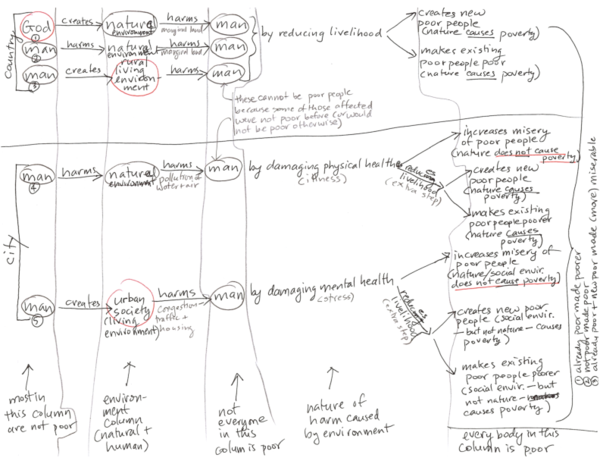 country
God
creates
nature
environment
harms
marginal land
man
by reducing livelihood
creates new
poor people
(nature causes
poverty)
man
harms
natural
environment
harms
marginal land
man
makes existing
poor people poor
(nature causes
poverty)
man
creates
rural
living
environ-
ment
harms
man
these cannot be poor people
because some of those affected
were not poor before (or would
not be poor otherwise)
city
man
harms
nature
environment
harms
pollution
water + air
man
by damaging physical health
(illness)
reduces
livelihood
(extra step)
increases misery
of poor people
(nature does not cause
poverty)
creates new
poor people
(nature causes
poverty)
makes existing
poor people poorer
(nature causes
poverty)
man
creates
urban
society
(living
environment)
harms
congestion
traffic +
housing
man
by damaging mental health
(stress)
reduces
livelihood
(extra step)
increases misery of
poor people
(nature/social envir.
does not cause poverty)
creates new poor
people (social envir.
- but not nature - causes
poverty)
makes existing
poor people poorer
(social envir. - but
not nature -
causes poverty)
① already poor made poorer
② not poor made poor
③ already poor + new poor made (more) miserable
most in
this column
are not poor
environ-
ment
column
(natural +
human)
not
everyone
in this
column is poor
nature of
harm caused
by environment
every body in this
column is poor